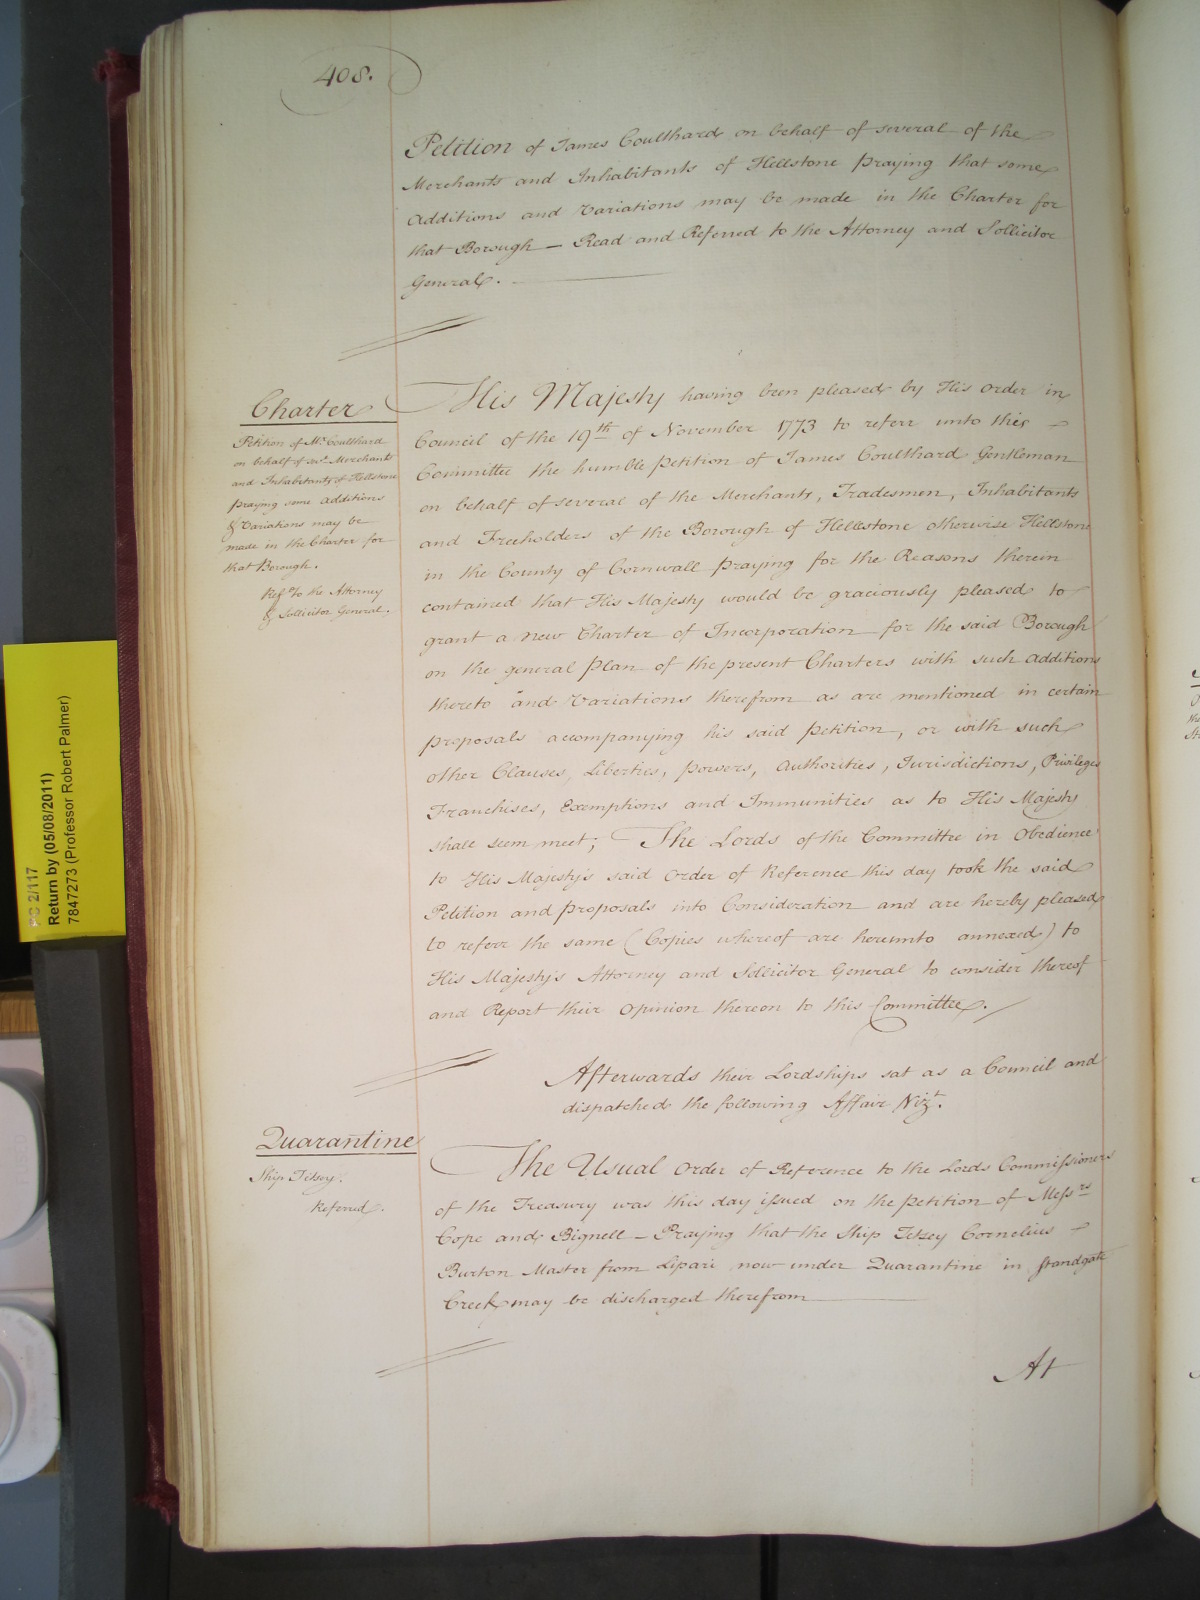 408.
Petition of James Coulthard on behalf of several of the
Merchants and Inhabitants of Hellstone praying that some
Additions and Variations may be made in the Charter for
that Borough — Read and Referred to the Attorney and Sollicitor
General.
Charter
Petition of Mr. Coulthard
on behalf of sevl. Merchants
and Inhabitants of Hellstone
praying some additions
& Variations may be
made in the Charter for
that Borough.
Refd. to the Attorney
& Sollicitor General.
His Majesty having been pleased by His order in
Council of the 19th of November 1773 to referr unto this
Committee the humble petition of James Coulthard Gentleman
on behalf of several of the Merchants, Tradesmen, Inhabitants
and Freeholders of the Borough of Hellestone otherwise Hellstone
in the County of Cornwall praying for the Reasons therein
contained that His Majesty would be graciously pleased to
grant a new Charter of Incorporation for the said Borough
on the general Plan of the present Charters with such additions
thereto and Variations therefrom as are mentioned in certain
proposals accompanying his said petition, or with such
other Clauses, Liberties, powers, authorities, Jurisdictions, Privileges
Franchises, Exemptions and Immunities as to His Majesty
shall seem meet; The Lords of the Committee in Obedience
to His Majesty's said Order of Reference this day took the said
Petition and proposals into Consideration and are hereby pleased
to referr the same (Copies whereof are hereunto annexed) to
His Majesty's Attorney and Sollicitor General to consider thereof
and Report their Opinion thereon to this Committee.
Afterwards their Lordships sat as a Council and
dispatched the following Affair Vizt.
Quarantine
Ship
Referred.
The Usual Order of Reference to the Lords Commissioners
of the Treasury was this day issued on the petition of Messrs
Cope and Bignell — Praying that the Ship Cornelius
Burton Master from Lipari now under Quarantine in Standgate
Creek may be discharged therefrom
At
PC 2/117
Return by (05/08/2011)
7847273 (Professor Robert Palmer)